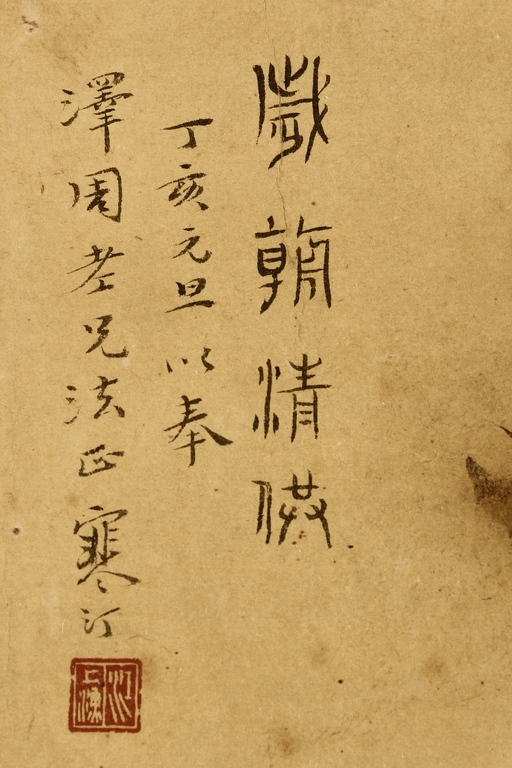 歲朝清供
丁亥元旦以奉
澤周老兄法正寒汀